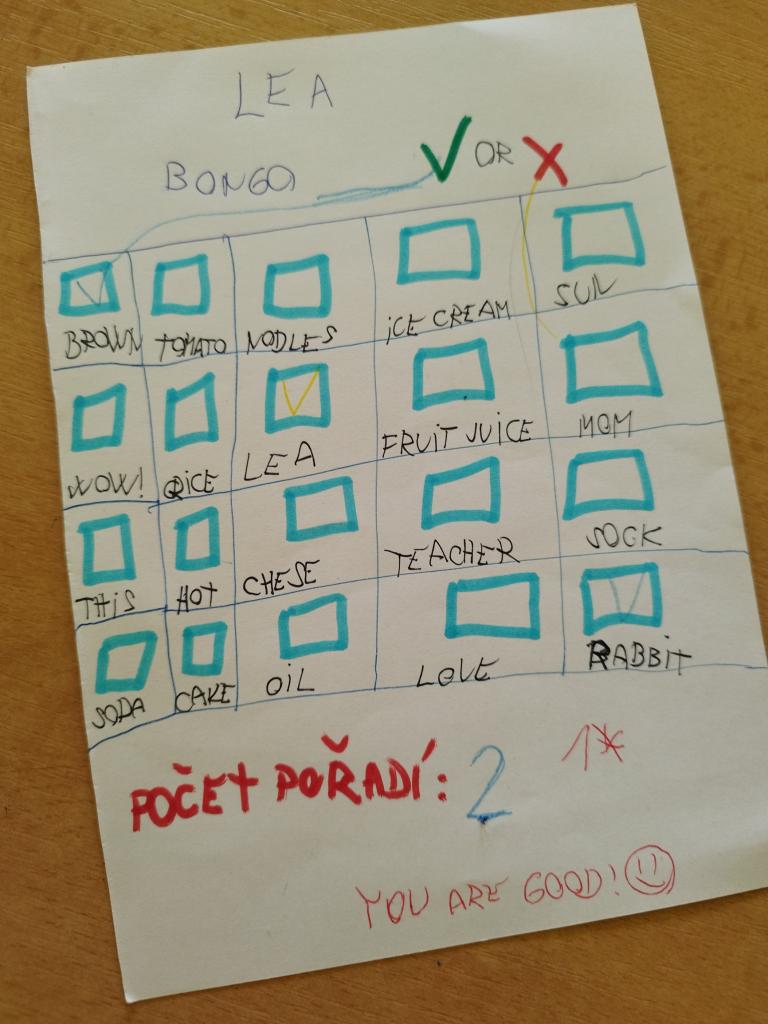 LEA
BONGO ✓ OR X
BROWN TOMATO NODLES ICE CREAM SUN
WOW! RICE LEA FRUIT JUICE MOM
THIS HOT CHESE TEACHER SOCK
SODA CAKE OIL LOVE RABBIT
POČET POŘADÍ: 2 1*
YOU ARE GOOD! ☺